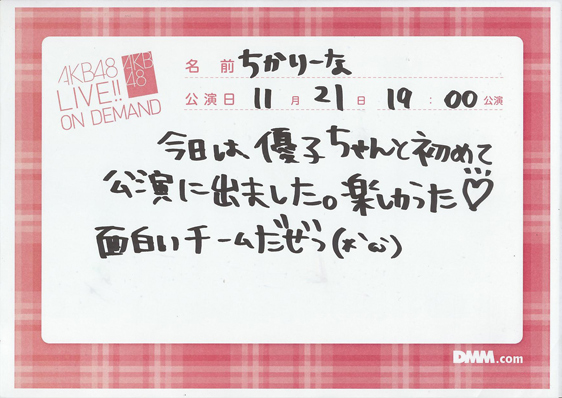 AKB48
LIVE!!
ON DEMAND
AKB
48
名前 ちかりーな
公演日 11月21日 19:00公演
今日は優子ちゃんと初めて
公演に出ました。楽しかった♡
面白いチームだぜっ(*`ω´)
DMM.com